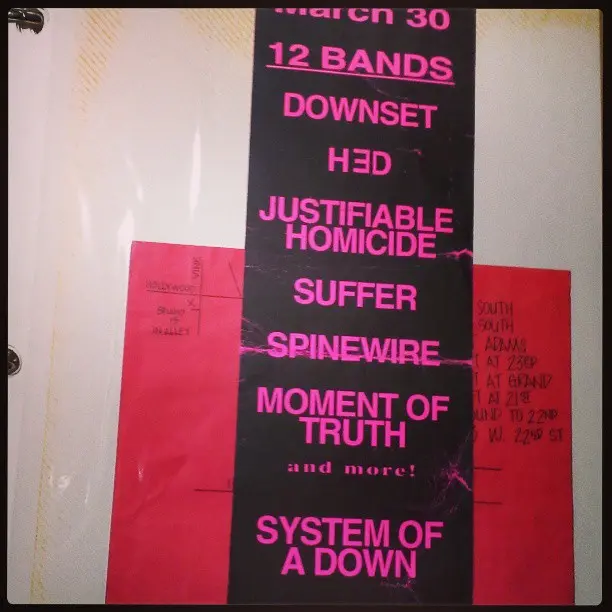 March 30
12 BANDS
DOWNSET
HƎD
JUSTIFIABLE
HOMICIDE
SUFFER
SPINEWIRE
MOMENT OF
TRUTH
and more!
SYSTEM OF
A DOWN
HOLLYWOOD
VINE
X
IN ALLEY
SOUTH
SOUTH
ADAMS
T AT 23RD
T AT GRAND
T AT 21ST
UND TO 22ND
W. 22ND ST